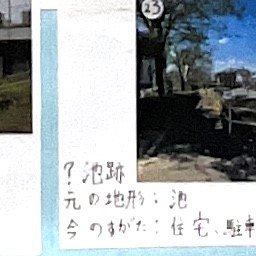 23
?池跡
元の地形:池
今のすがた:住宅、駐車